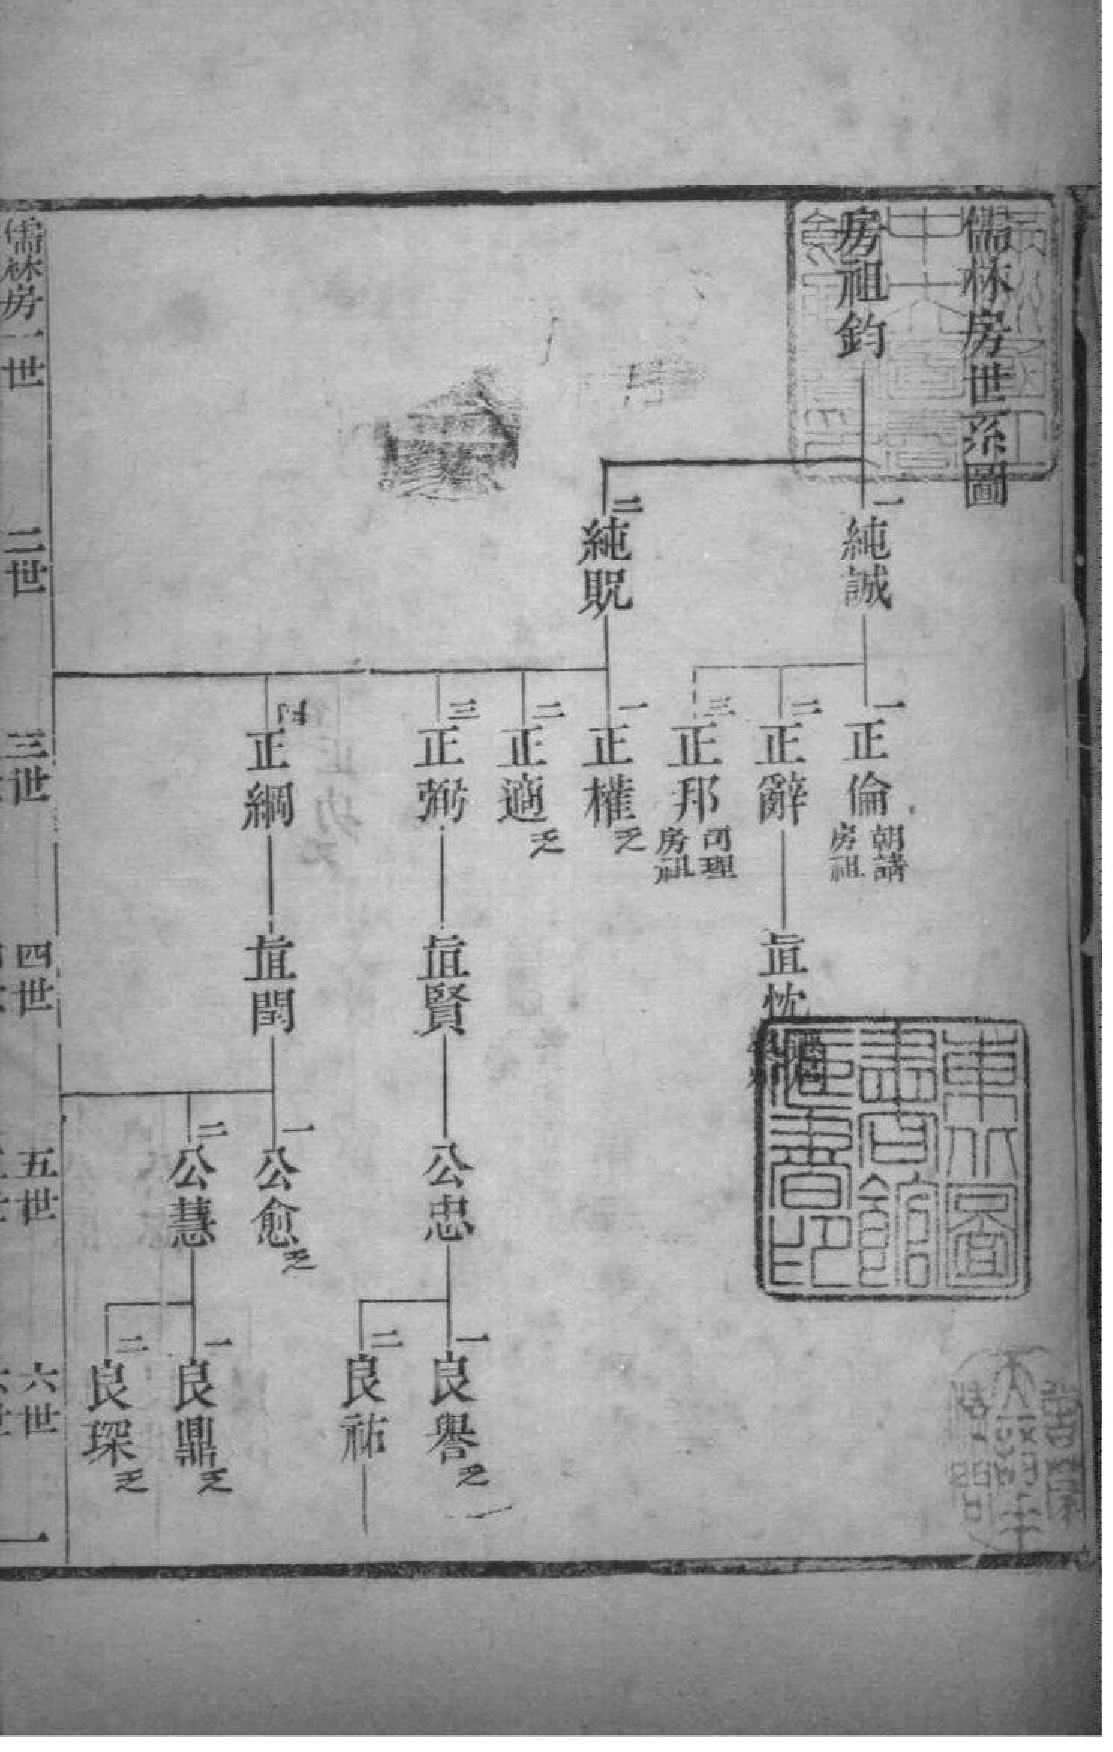 儒林房世系圖
房祖鈞
一
純誠
二
純貺
一
正倫
朝講
房祖
二
正辭
三
正邦
司理
房祖
一
正權
乏
二
正適
乏
三
正弼
正綱
眞忱
眞賢
眞閏
公忠
一
公愈
乏
二
公慧
一
良譽
乏
二
良祐
一
良鼎
乏
二
良琛
乏
東北圖
書館
藏書印
儒林房一世
二世
三世
四世
五世
六世
一